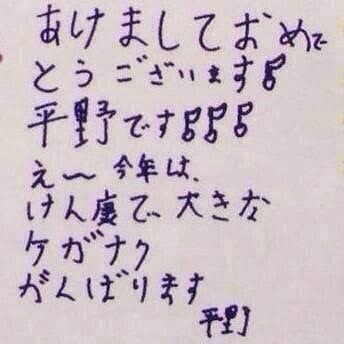 あけましておめで
とうございます♪
平野です♪♪♪
え〜今年は、
けん康で、大きな
ケガナク
がんばります
平野